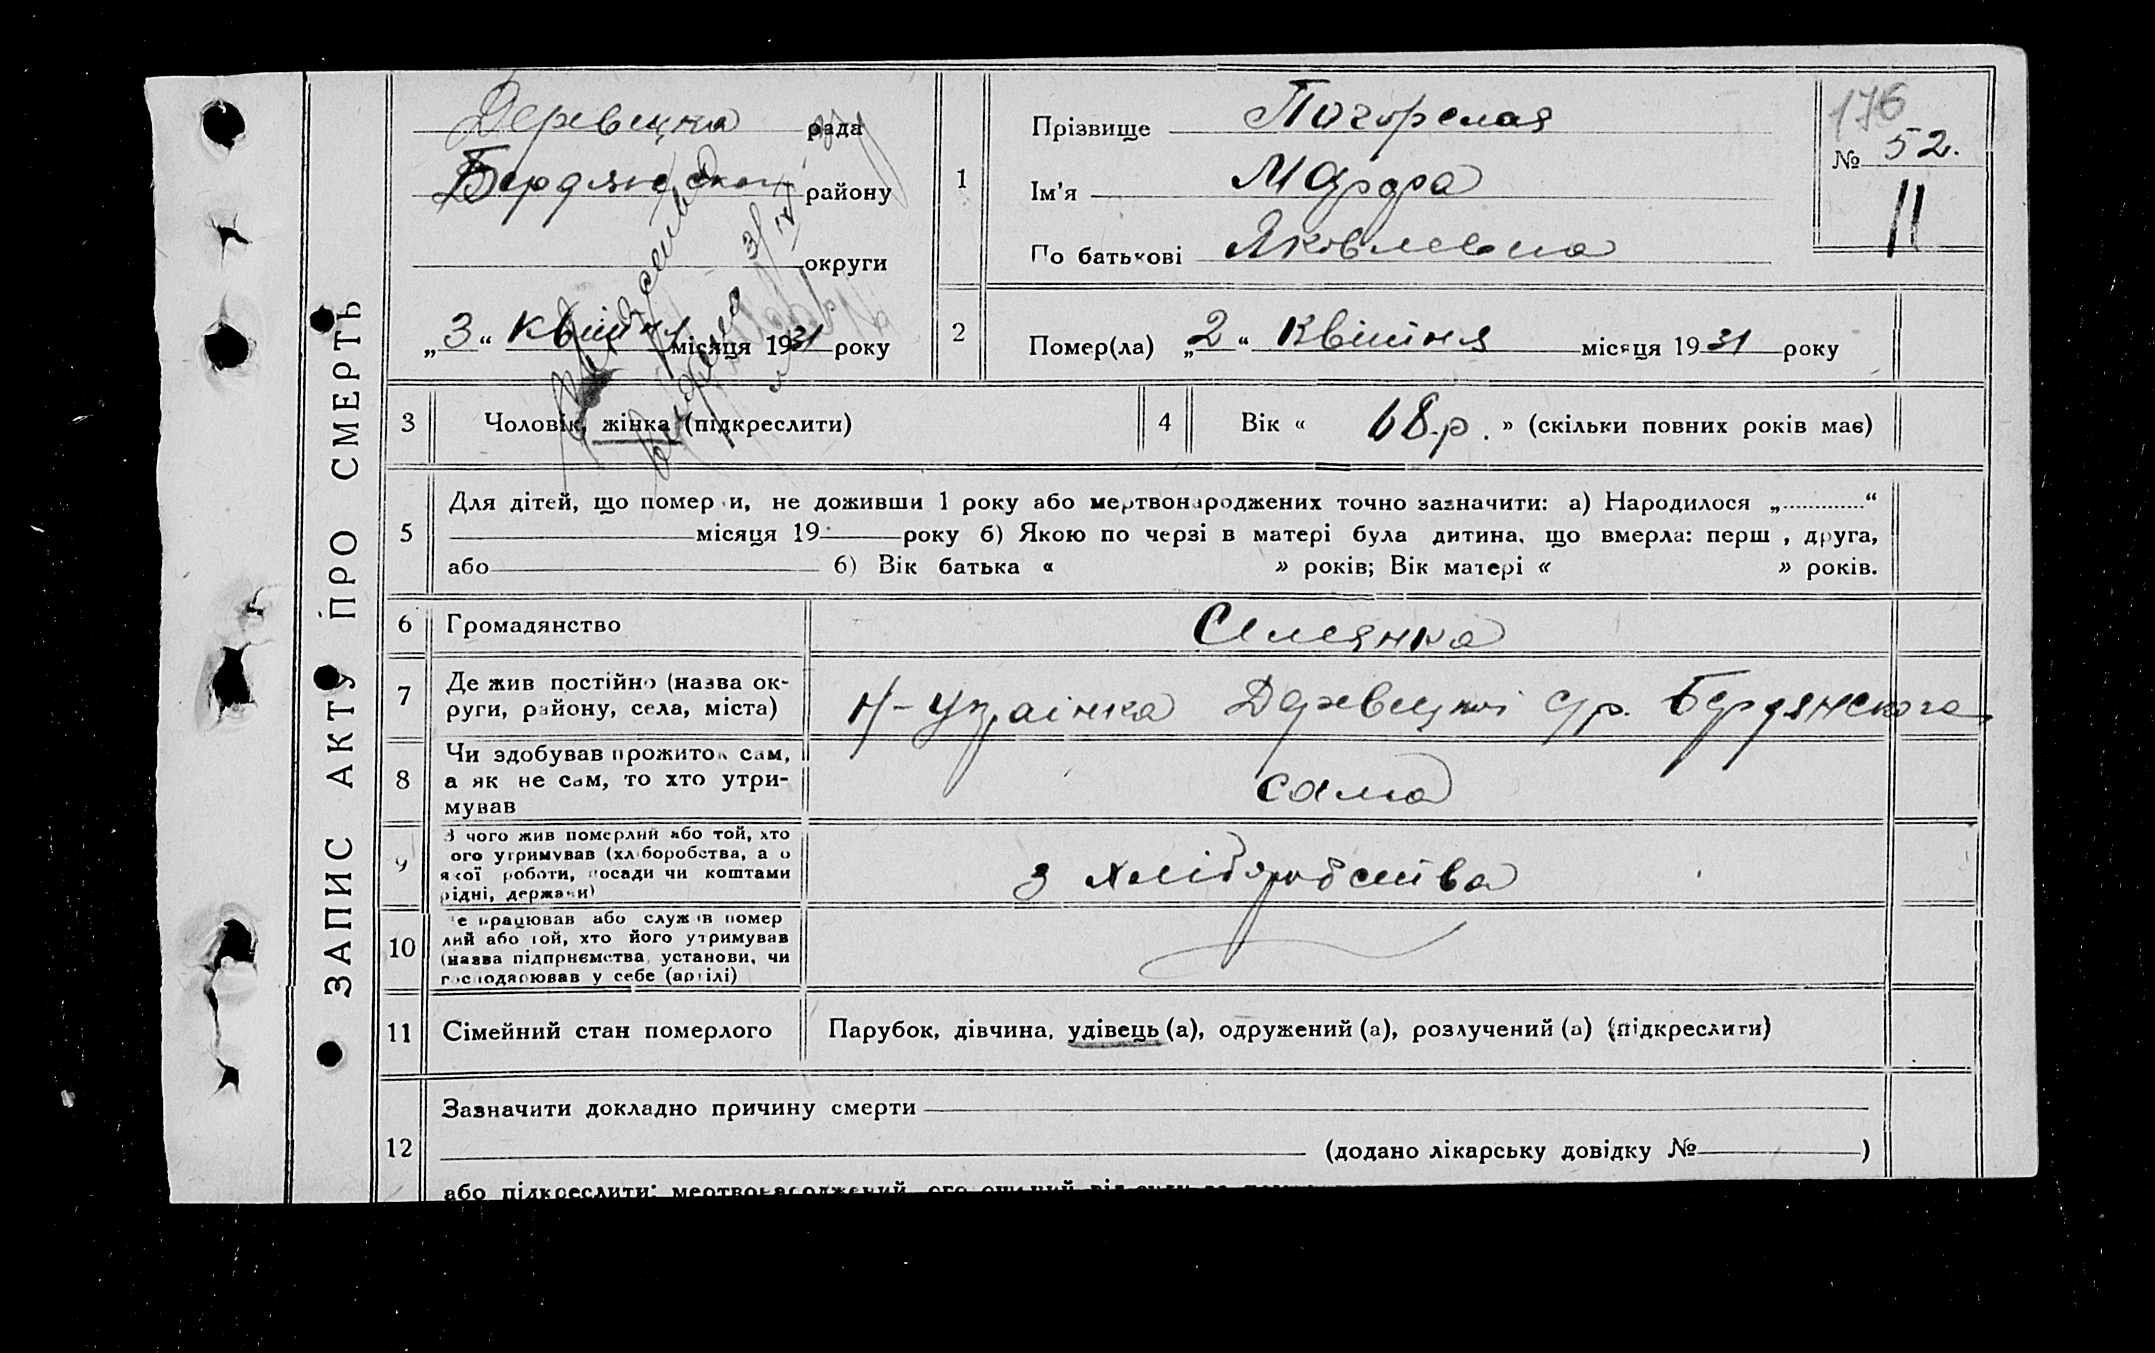 ЗАПИС АКТУ ПРО СМЕРТЬ
Деревецька рада
Бердянського району
округи
„3“ квітня місяця 1931 року
1
Прізвище Погорелая
Ім'я Марфа
По батькові Яковлевна
176
№ 52.
11
2 Помер(ла) „2“ Квітня місяця 1931 року
3 Чоловік, жінка (підкреслити)
4 Вік « 68 р. » (скільки повних років має)
5
Для дітей, що померли, не доживши 1 року або мертвонароджених точно зазначити: а) Народилося „............“
місяця 19 року б) Якою по черзі в матері була дитина, що вмерла: перша, друга,
або б) Вік батька « » років; Вік матері « » років.
6 Громадянство Селянка
7 Де жив постійно (назва ок-
руги, району, села, міста)
с/р. Бердянского
8 Чи здобував прожиток сам,
а як не сам, то хто утри-
мував
сама
9 З чого жив померлий або той, хто
його утримував (хліборобства, а о
якої роботи, посади чи коштами
рідні, держави)
з хліборобства
10 Де працював або служив помер
лий або той, хто його утримував
(назва підприємства, установи, чи
господарював у себе (артілі)
11 Сімейний стан померлого Парубок, дівчина, удівець (а), одружений (а), розлучений (а) (підкреслити)
12
Зазначити докладно причину смерти
(додано лікарську довідку № )
або підкреслити: мертвонароджений,